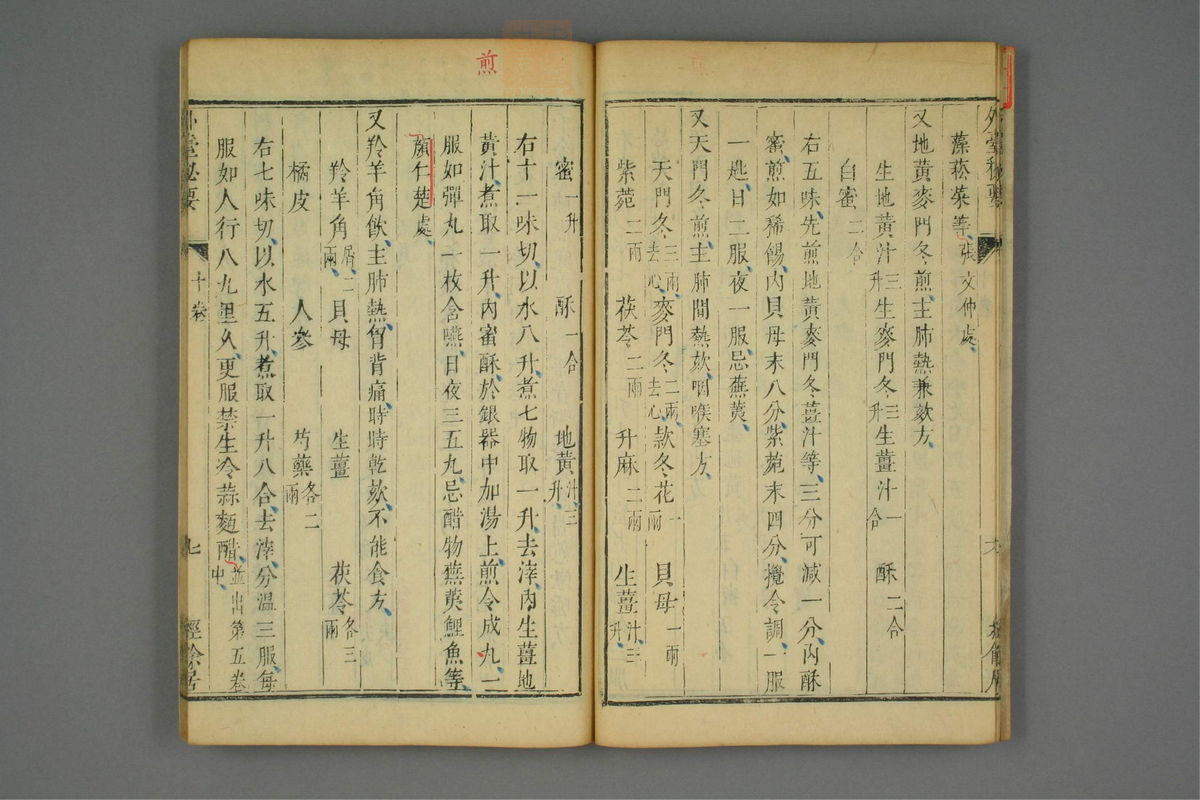 外臺秘要
藻菘菜等張文仲處
又地黃麥門冬煎主肺熱兼欬方
生地黃汁三升 生麥門冬三升 生薑汁一合 酥二合
白蜜二合
右五味先煎地黃麥門冬薑汁等三分可減一分內酥
蜜煎如稀餳內貝母末八分紫菀末四分攪令調一服
一匙日二服夜一服忌蕪荑
又天門冬煎主肺間熱欬咽喉塞方
天門冬三兩去心 麥門冬二兩去心 款冬花一兩 貝母一兩
紫菀二兩 茯苓二兩 升麻二兩 生薑汁三升
蜜一升 酥一合 地黃汁三升
右十一味切以水八升煮七物取一升去滓內生薑地
黃汁煮取一升內蜜酥於銀器中加湯上煎令成丸一
服如彈丸一枚含嚥日夜三五丸忌醋物蕪荑鯉魚等
顏仁楚處
又羚羊角飲主肺熱胷背痛時時乾欬不能食方
羚羊角屑二兩 貝母 生薑 茯苓各三兩
橘皮 人參 芍藥各二兩
右七味切以水五升煮取一升八合去滓分溫三服每
服如人行八九里久更服禁生冷蒜麵醋並出第五卷中
外臺秘要 十卷 七 經餘居
煎